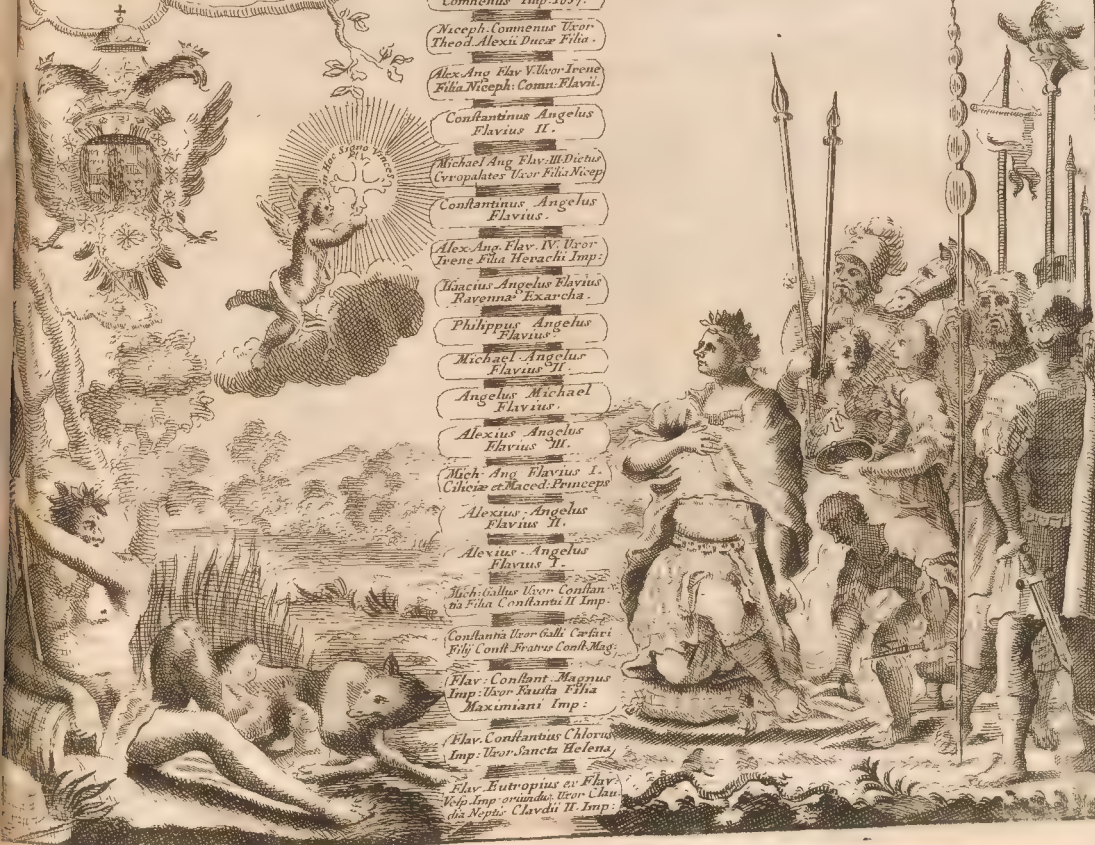 Comnenus Imp. 1057.
Niceph. Comnenus Uxor
Theod. Alexii Ducæ Filia.
Alex. Ang Flav V. Uxor Irene
Filia Niceph: Comn: Flavii.
Constantinus Angelus
Flavius II.
Michael Ang Flav: III. Dictus
Cvropalates Uxor Filia Nicep
Constantinus Angelus
Flavius.
Alex. Ang. Flav. IV. Uxor
Irene Filia Heraclii Imp:
Isaacius Angelus Flavius
Ravennæ Exarcha.
Philippus Angelus
Flavius.
Michael Angelus
Flavius II.
Angelus Michael
Flavius.
Alexius Angelus
Flavius III.
Mich Ang Flavius I.
Ciliciæ et Maced: Princeps
Alexius Angelus
Flavius II.
Alexius Angelus
Flavius I.
Mich: Gallus Uxor Constan
tia Filia Constantii II Imp.
Constantia Uxor Galli Cæsari
Filij Const. Fratris Const. Mag:
Flav: Constant. Magnus
Imp: Uxor Fausta Filia
Maximiani Imp:
Flav. Constantius Chlorus
Imp: Uxor Sancta Helena
Flav Eutropius ex Flav:
Vesp. Imp oriundus Uxor Clau
dia Neptis Clavdii II. Imp:
Hoc Signo Vinces